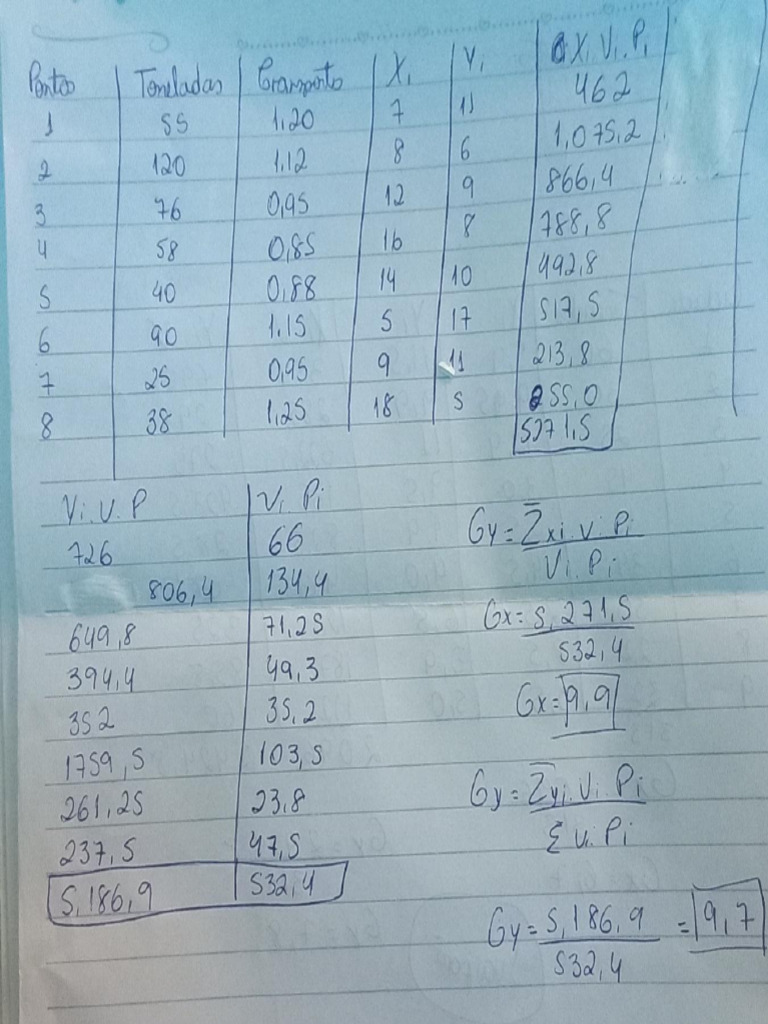 Pontos Toneladas Transporto Xi Yi Xi Vi Pi
1 55 1,20 7 11 462
2 120 1,12 8 6 1,075,2
3 76 0,95 12 9 866,4
4 58 0,85 16 8 788,8
5 40 0,88 14 10 492,8
6 90 1,15 5 17 517,5
7 25 0,95 9 11 213,8
8 38 1,25 18 5 855,0
5271,5
Yi. V. P Vi Pi
726 66
806,4 134,4
649,8 71,25
394,4 49,3
352 35,2
1759,5 103,5
261,25 23,8
237,5 47,5
5,186,9 532,4
Gy = Σxi. vi. Pi
Vi. Pi
Gx = 5,271,5
532,4
Gx = 9,9
Gy = Σyi. Vi. Pi
Σ Vi. Pi
Gy = 5,186,9 = 9,7
532,4